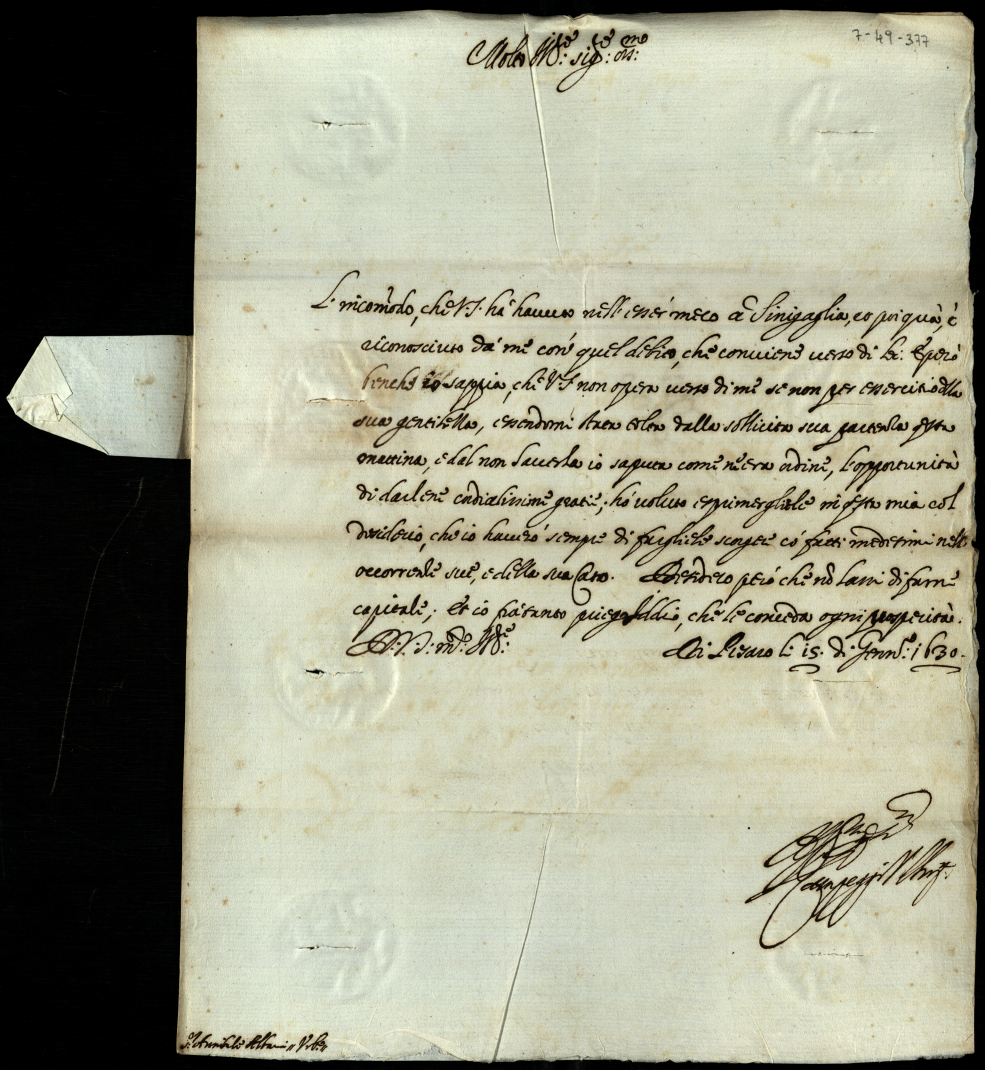 7-49-377
Molto Ill:re sig:re oss:mo
L'incomodo, che V.S. ha havuto nell'esser meco à Sinigaglia, et poi quà, è
riconosciuto da me con quel debito, che conviene verso di lei: E però
benche io sappia, che V.S. non opera verso di me se non per essercitio della
sua gentilezza, essendomi stata tolta dalla sollicita sua partenza questa
mattina, e dal non haverla io saputa come n'era ordine, l'opportunità
di darlene cordialissime gratie; hò voluto esprimergliele in questa mia col
desiderio, che io haverò sempre di farglielo scorgere cò fatti medesimi nelle
occorrenze sue, e della sua Casa. però che nò lasci di farne
capitale; Et io frà tanto priego Iddio, che le conceda ogni prosperità.
D. V. S. m:to Ill:re Di Pesaro li 15. di Genn:o 1630.
Campeggi
S:r Annibale Albani Urb:o